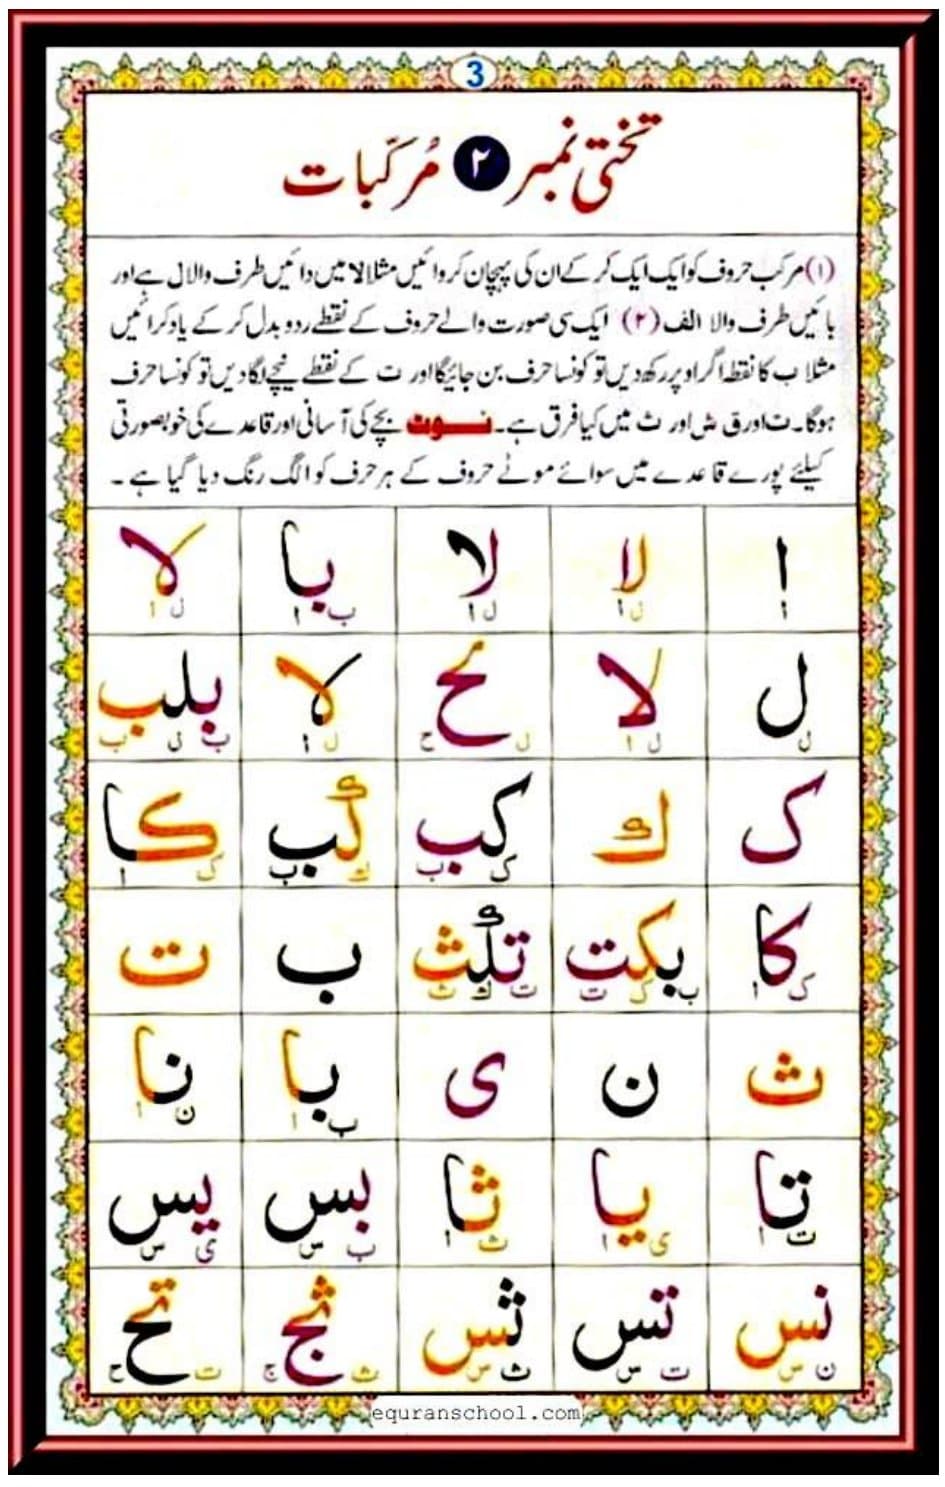 3
تختی نمبر ۲ مُرکّبات
(۱) مرکب حروف کو ایک ایک کر کے ان کی پہچان کروائیں مثلا لا میں دائیں طرف والا ل ہے اور
بائیں طرف والا الف (۲) ایک سی صورت والے حروف کے نقطے ردوبدل کر کے یاد کرائیں
مثلا ب کا نقطہ اگر اوپر رکھ دیں تو کونسا حرف بن جائیگا اور ت کے نقطے نیچے لگا دیں تو کونسا حرف
ہوگا۔ ت اور ق ش اور ث میں کیا فرق ہے۔ نوٹ بچے کی آسانی اور قاعدے کی خوبصورتی
کیلئے پورے قاعدے میں سوائے موٹے حروف کے ہر حرف کو الگ رنگ دیا گیا ہے۔
ا لا لا با لا
ا ل ا ل ا ب ا ل ا
ل لا لح لا بلب
ل ل ا ل ح ل ا ب ل ب
ک ك کب ڪب کا
ک ب ك ب ک ا
کا بکت تكث ب ت
ک ا ب ک ت ت ك ث
ث ن ی با نا
ب ا ن ا
تا یا ثا بس یس
ت ا ی ا ث ا ب س ی س
نس تس ثس ثج تح
ن س ت س ث س ث ج ت ح
equranschool.com